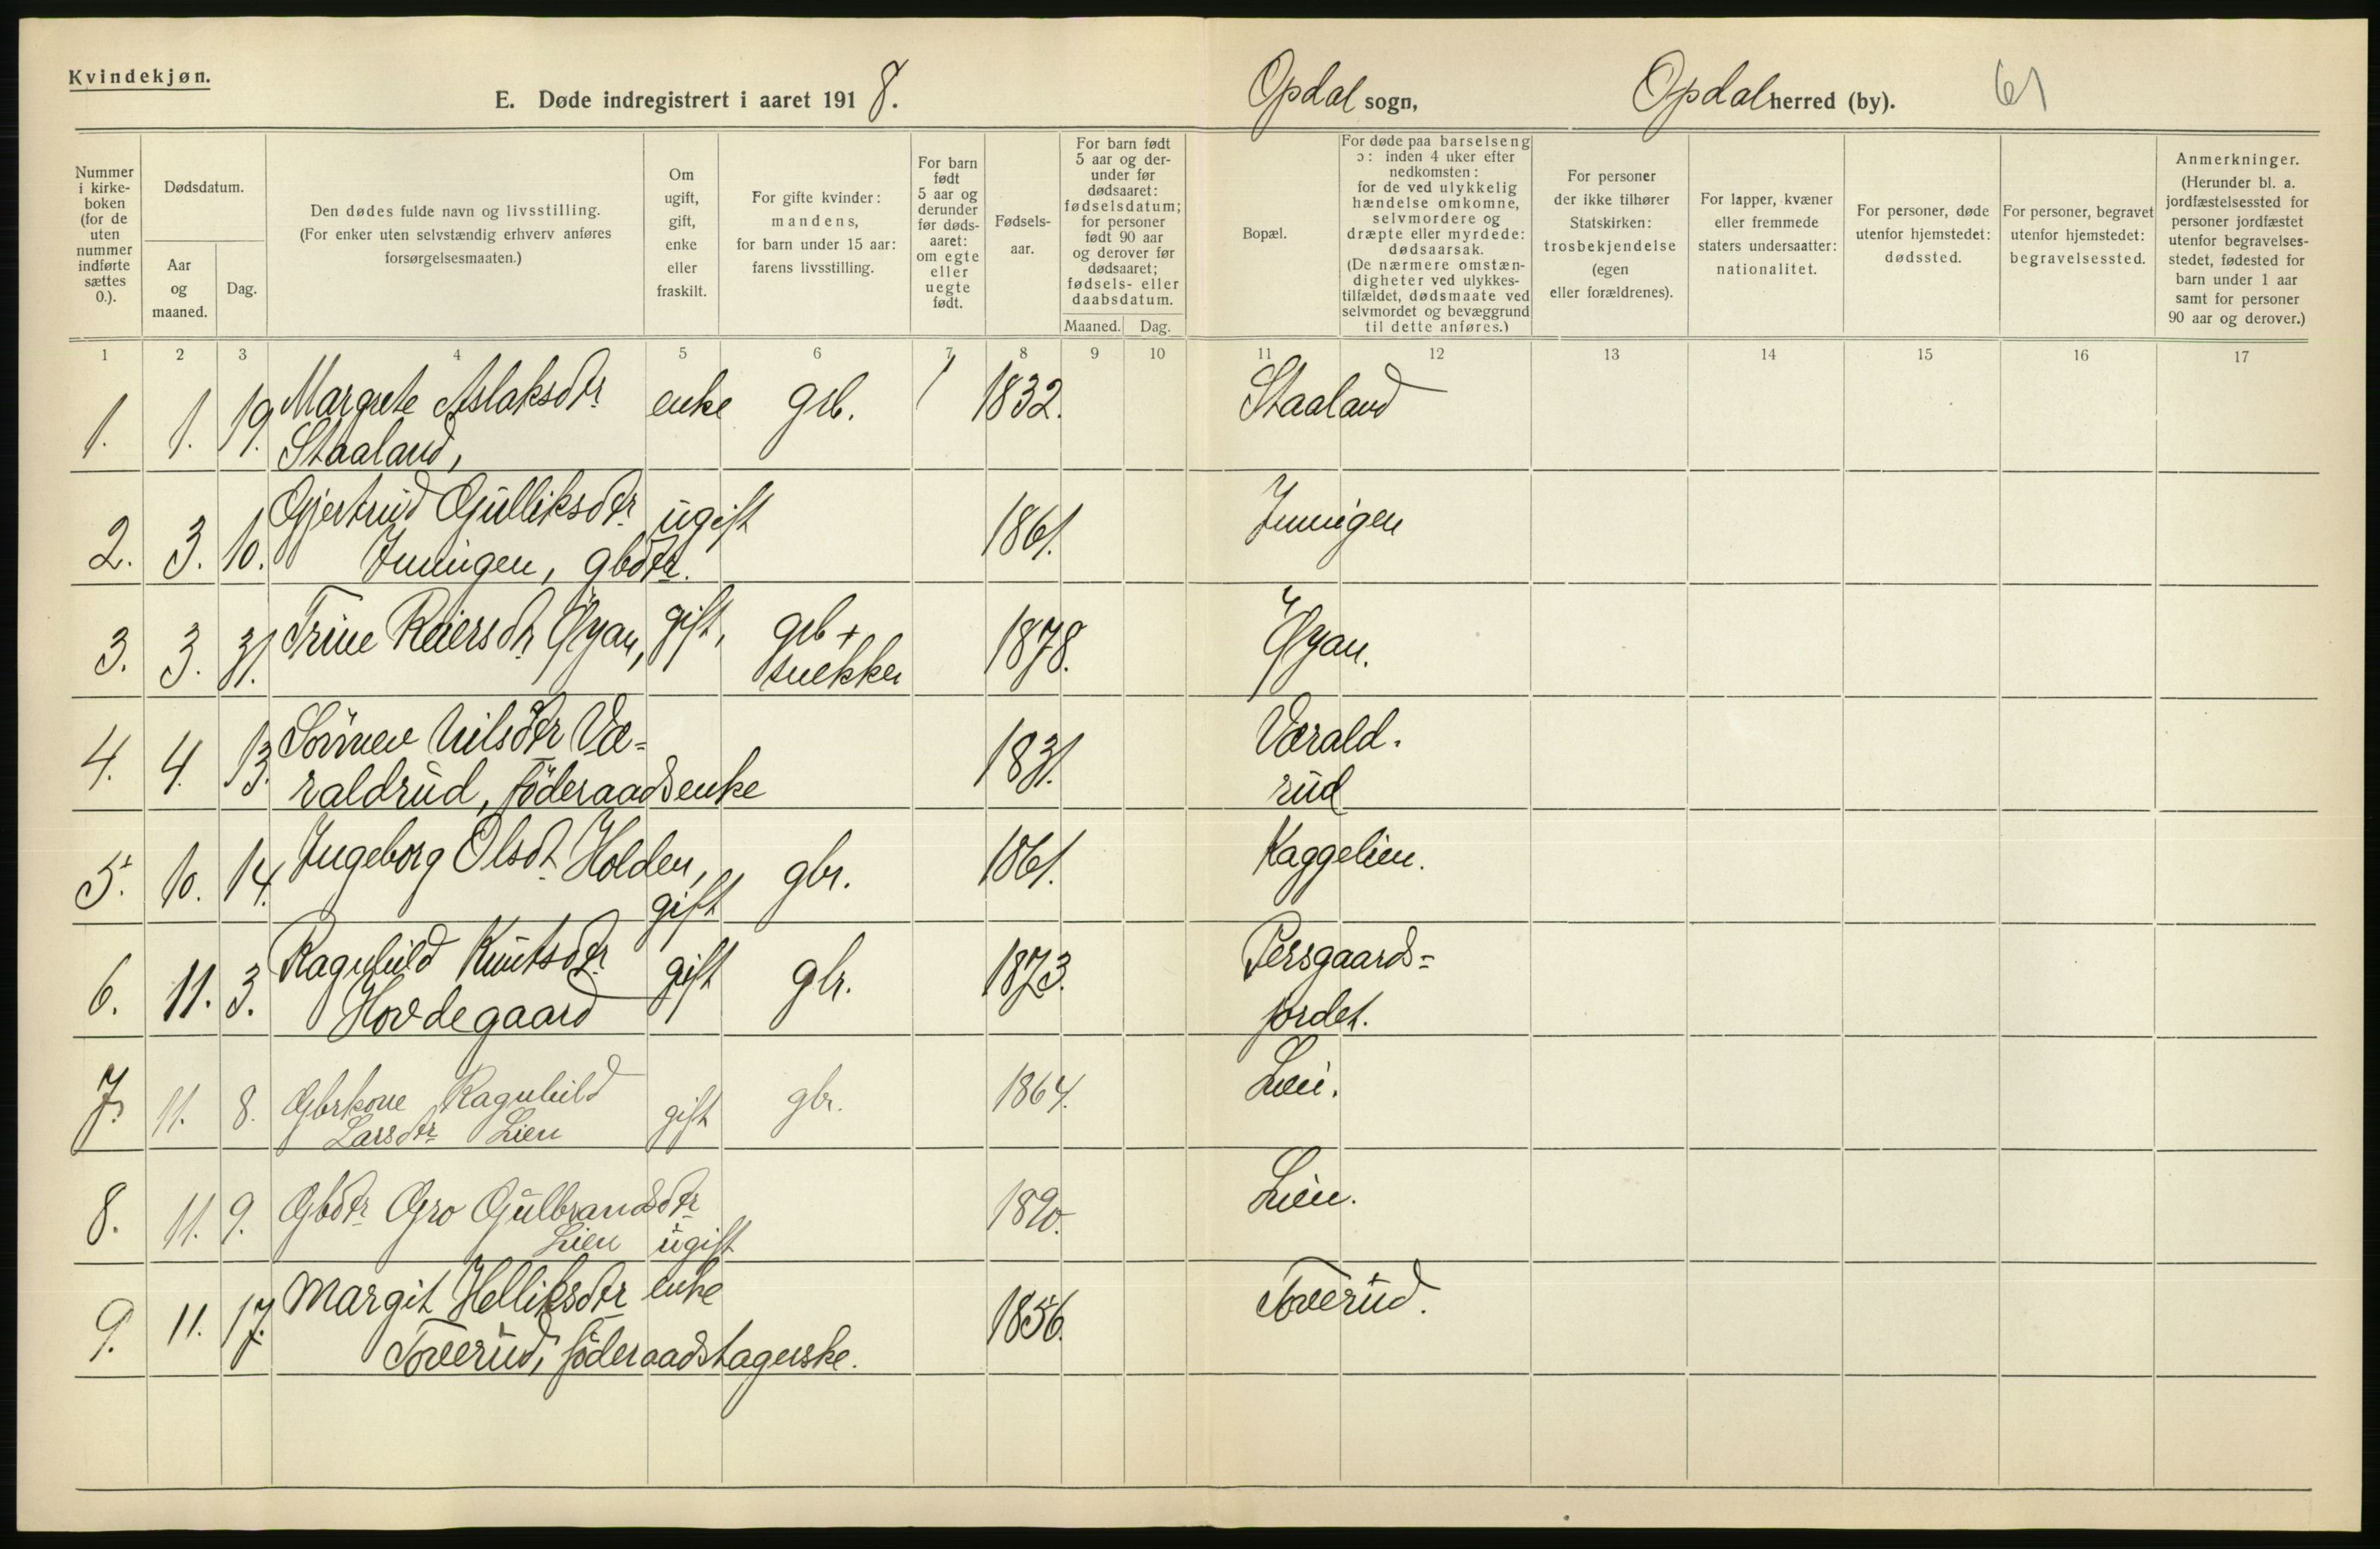 Kvindekjøn.
E. Døde indregistrert i aaret 1918.
Opdal sogn,
Opdal herred (by).
61
Nummer
i kirke-
boken
(for de
uten
nummer
indførte
sættes
0.).
Dødsdatum.
Aar
og
maaned.
Dag.
Den dødes fulde navn og livsstilling.
(For enker uten selvstændig erhverv anføres
forsørgelsesmaaten.)
Om
ugift,
gift,
enke
eller
fraskilt.
For gifte kvinder:
mandens,
for barn under 15 aar:
farens livsstilling.
For barn
født
5 aar og
derunder
før døds-
aaret:
om egte
eller
uegte
født.
Fødsels-
aar.
For barn født
5 aar og der-
under før
dødsaaret:
fødselsdatum;
for personer
født 90 aar
og derover før
dødsaaret;
fødsels- eller
daabsdatum.
Maaned. Dag.
Bopæl.
For døde paa barselseng
ɔ: inden 4 uker efter
nedkomsten:
for de ved ulykkelig
hændelse omkomne,
selvmordere og
dræpte eller myrdede:
dødsaarsak.
(De nærmere omstæn-
digheter ved ulykkes-
tilfældet, dødsmaate ved
selvmordet og bevæggrund
til dette anføres.)
For personer
der ikke tilhører
Statskirken:
trosbekjendelse
(egen
eller forældrenes).
For lapper, kvæner
eller fremmede
staters undersaatter:
nationalitet.
For personer, døde
utenfor hjemstedet:
dødssted.
For personer, begravet
utenfor hjemstedet:
begravelsessted.
Anmerkninger.
(Herunder bl. a.
jordfæstelsessted for
personer jordfæstet
utenfor begravelses-
stedet, fødested for
barn under 1 aar
samt for personer
90 aar og derover.)
1 2 3 4 5 6 7 8 9 10 11 12 13 14 15 16 17
1. 1. 19. Margrete Aslaksdtr enke 1832. Staaland
Staaland,
2. 3. 10. Gjertrud Gulliksdtr ugift 1861. Juningen
Juningen, gbdtr.
3. 3. 31. Trine Reiersdtr Øyan, gift, 1878. Øyan.
snekker
4. 4. 13. Sönnev Nilsdtr Væ= 1831. Værald.
raldrud, föderaadsenke rud
5. 10. 14. Ingeborg Olsdt Holden, gift gbr. 1861. Kaggelien.
6. 11. 3. Ragnhild Knutsdtr gift gbr. 1873. Persgaards=
Hovdegaard jordet.
7. 11. 8. Gbrkone Ragnhild gift gbr. 1864. Lien.
Larsdtr Lien
8. 11. 9. Gbdtr Gro Gulbrandsdtr 1890. Lien.
Lien ugift
9. 11. 17. Margit Helliksdtr enke 1856. Toverud.
Toverud, föderaadstagerske.